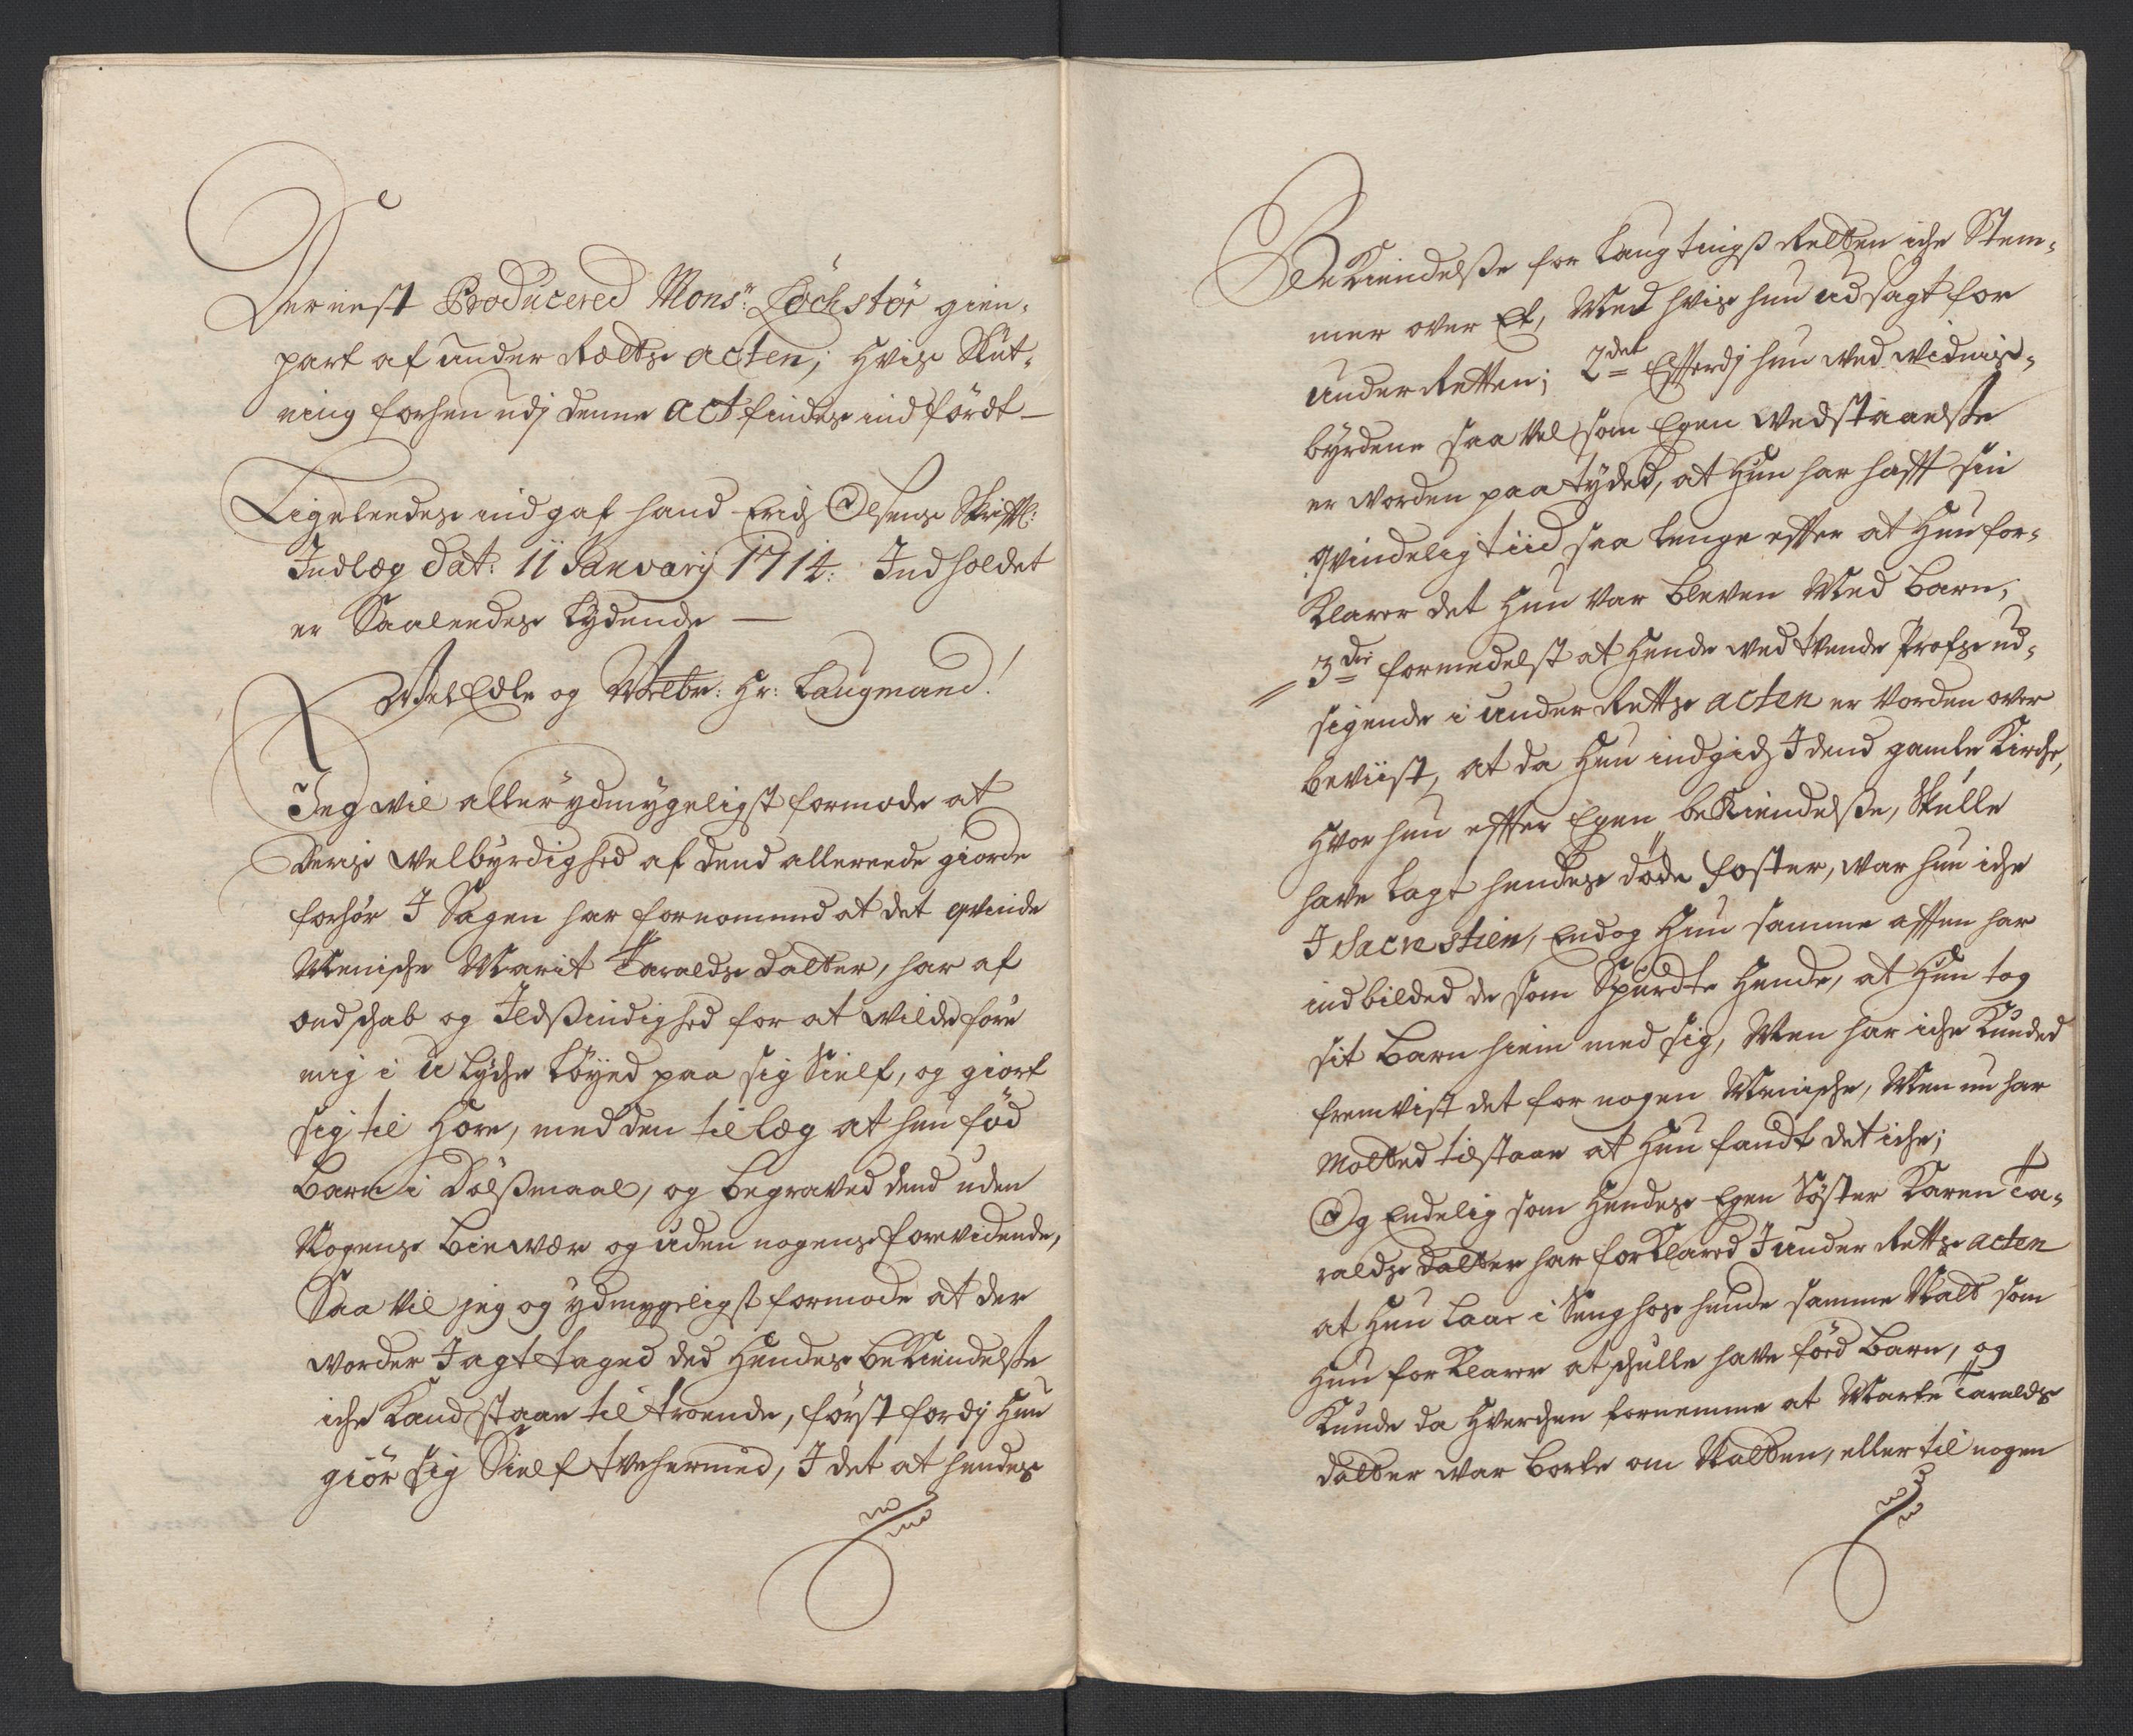 Dernest Producered Mons:r Lochstör gien-
part af under Rætts acten, hvis Slut-
ning forhen udj denne Act findes indfördt —
Ligeleedes indgaf hand Erich Olsens Skriftl:
Indlæg dat: 11 Januarij 1714: Indholdet
er Saaleedes lydende —
WelEdle og Welbr: Hr: Laugmand!
Jeg vil allerydmygeligst formode at
Deris Welbyrdighed af dend allereede giorde
forhör I Sagen har fornommed at det qvinde
Menische Marit Taraldsdatter, har af
ondschab og Ildsindighed for at vilde före
mig i Ulyche löyed paa sig Sielf, og giort
sig til Hore, med den tillæg at hun föd
Barn i Dölsmaal, og begraved dend uden
Nogens biewær og uden nogens forevidende,
Saa vil jeg og ydmygeligst formode at der
vorder Jagttaged ded Hendes bekiendelse
iche kand staae til troende, först fordj Hun
giör sig Sielf tvehermed, I det at hendes
Bekiendelse for Laugtings Retten iche Stem-
mer over Et, Med hvis hun udsagt for
under Retten; 2det Efterdj hun ved vidnis-
byrdene saa vel som Egen vedstaaelse
er vorden paatyded, at Hun har hafft sin
qvindelig tiid saa lenge effter at Hun for-
klarer det Hun var bleven Med Barn,
3die formedelst at Hende ved tvende Profs ud-
sigende i under Retts acten er vorden over
beviist, at da Hun indgich I dend gamle Kirche,
Hvor hun effter Egen bekiendelse, Skulle
have lagt hendes döde foster, var hun iche
I Sacrestien, Endog Hun samme afften har
indbilded de som Spurdte Hende, at Hun tog
sit Barn hiem med sig, Men har iche kunded
fremvist det for nogen Menische, Men nu har
Motted tilstaae at Hun fandt det iche;
Og Endelig som Hendes Egen Söster Karen Ta-
raldsdatter har forklared I under Retts acten
at Hun laae i Seng hos hende samme Natt som
Hun forklarer at schulle have föed Barn, og
Kunde da Hverchen fornemme at Marte Taralds
datter var borte om Natten, eller til nogen